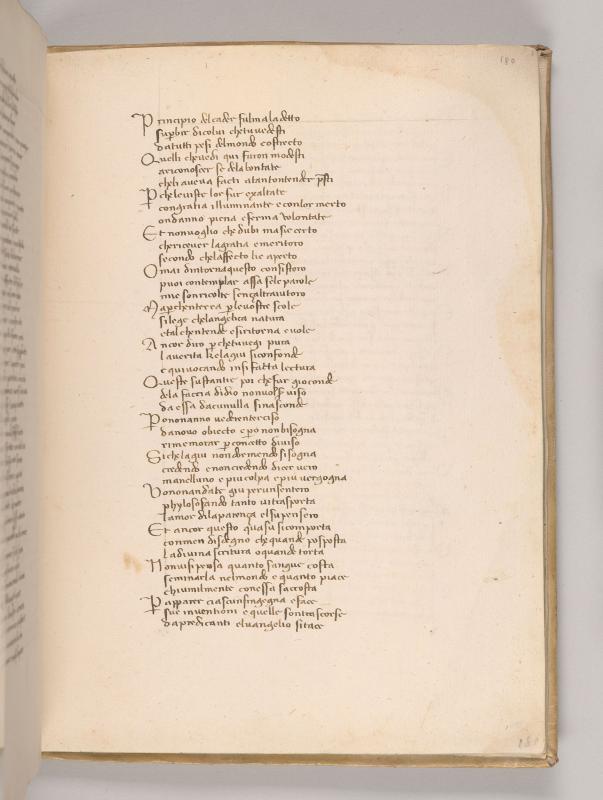 180
Principio del cader fu lmaladetto
superbir dicolui chetu vedesti
datutti pesi delmondo costrecto
Quelli chevedi qui furon modesti
ariconoscer se dela bontate
cheli aveva facti atantontender presti
Per cheleviste lor fur exaltate
congratia illuminante e conlor merto
ondanno piena e ferma volontate
Et nonvoglio che dubi masie certo
chericever lagratia e meritoro
secondo chelaffecto lie aperto
Omai dintornaquesto consistoro
puoi contemplar assa sele parole
mie sonricolte sençaltraiutoro
Ma perchenterra per levostre scole
si lege chelangelica natura
e tal chentende e siritorna e vole
Ancor diro per chetuvegi pura
la verita kelagiu siconfonde
e quivocando insi fatta lectura
Queste sustantie poi che fur gioconde
dela faccia didio nonvolser viso
da essa dacunulla sinasconde
Pero nonanno vederenterciso
da novo obiecto e pero non bisogna
rimemorar per concetto diviso
Siche lagiu nondormendo sisogna
credendo e noncredendo dicer vero
manelluno e piu colpa e piu vergogna
Vo nonandate giu perunsentero
phylosofando tanto vitrasporta
lamor dilaparença elsu pensero
Et ancor questo quasu sicomporta
conmen disdegno che quande posposta
la divina scritura o quande torta
Non visi pensa quanto sangue costa
seminarla nelmondo e quanto piace
chi umilmente conessa saccosta
Per apparer ciascunsingegna e face
sue inventioni e quelle sontrascorse
dapredicanti elvangelio sitace